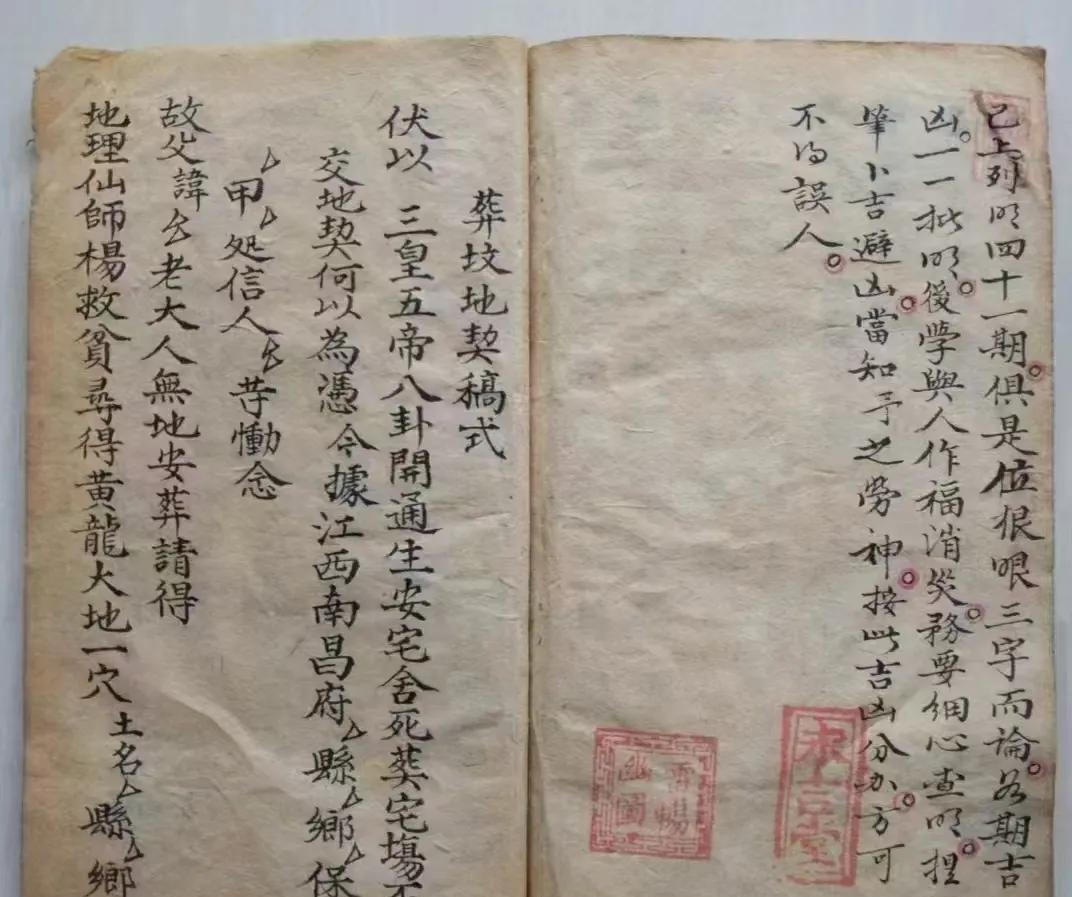 已上列明四十一期俱是位狠眼三字而論各期吉
凶一一批明後學與人作福消災務要細心查明捏
筆卜吉避凶當知予之勞神按此吉凶分办方可
不得誤人
葬坟地契稿式
伏以 三皇五帝八卦開通生安宅舍死葬宅塲不
交地契何以為憑今據江西南昌府ム縣ム鄉ム保
ム甲ム処信人ム等慟念
故父諱ム老大人無地安葬請得
地理仙師楊救貧尋得黄龍大地一穴土名ム縣ム鄉